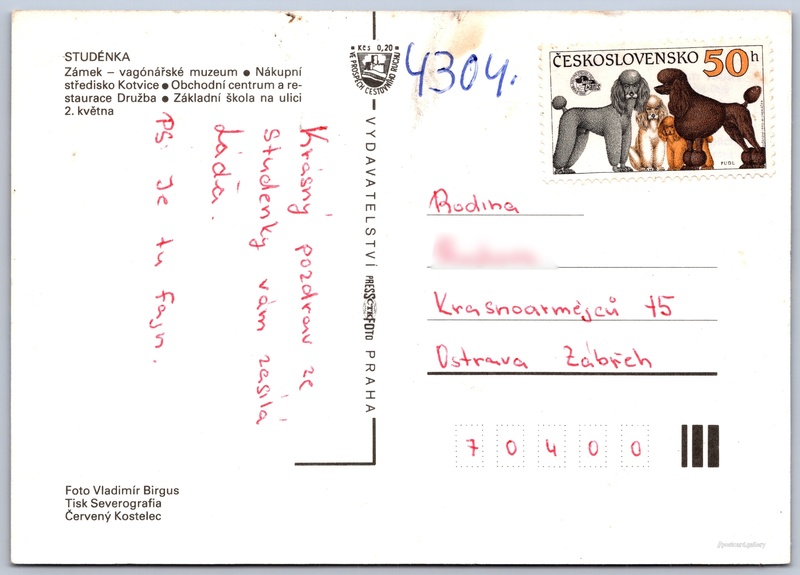 STUDÉNKA
Zámek – vagónářské muzeum ● Nákupní
středisko Kotvice ● Obchodní centrum a re-
staurace Družba ● Základní škola na ulici
2. května
Krásný pozdrav ze
Studenky vám zasílá
Láďa.
PS: Je tu fajn.
Foto Vladimír Birgus
Tisk Severografia
Červený Kostelec
Kčs 0,20
VE PROSPĚCH CESTOVNÍHO RUCHU
VYDAVATELSTVÍ PRESSFOTO PRAHA
4304.
ČESKOSLOVENSKO 50h
PUDL
Rodina
Krasnoarmějců 15
Ostrava Zábřeh
70400
//postcard.gallery